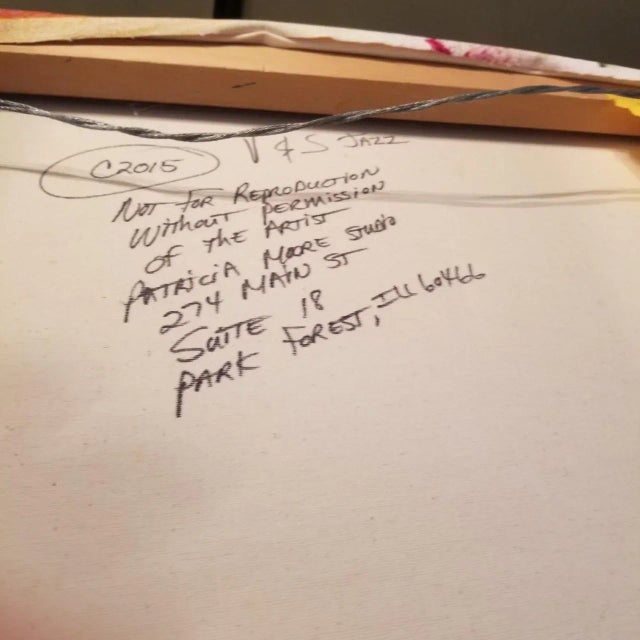 V & S JAZZ
C2015
NOT FOR REPRODUCTION
WITHOUT PERMISSION
OF THE ARTIST
PATRICIA MOORE STUDIO
274 MAIN ST
SUITE 18
PARK FOREST, ILL 60466